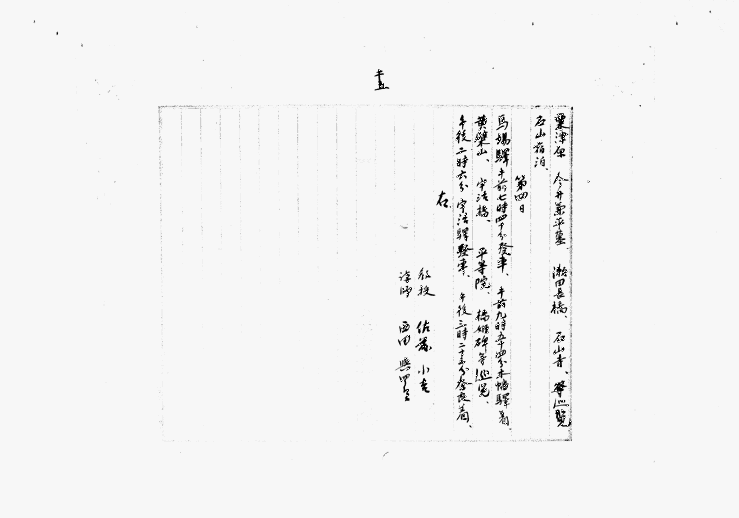 十五
粟津原 今井兼平墓 瀬田長橋、石山寺、等巡覧
石山宿泊、
第四日
馬場驛 午前七時四十分發車、午前九時五十四分木幡驛着、
黄檗山、宇治橋、平等院、橋姫碑等巡覧、
午後二時六分宇治驛發車、午後三時二十五分奈良着、
右
教授 佐藤小吉
講師 西田與四郎